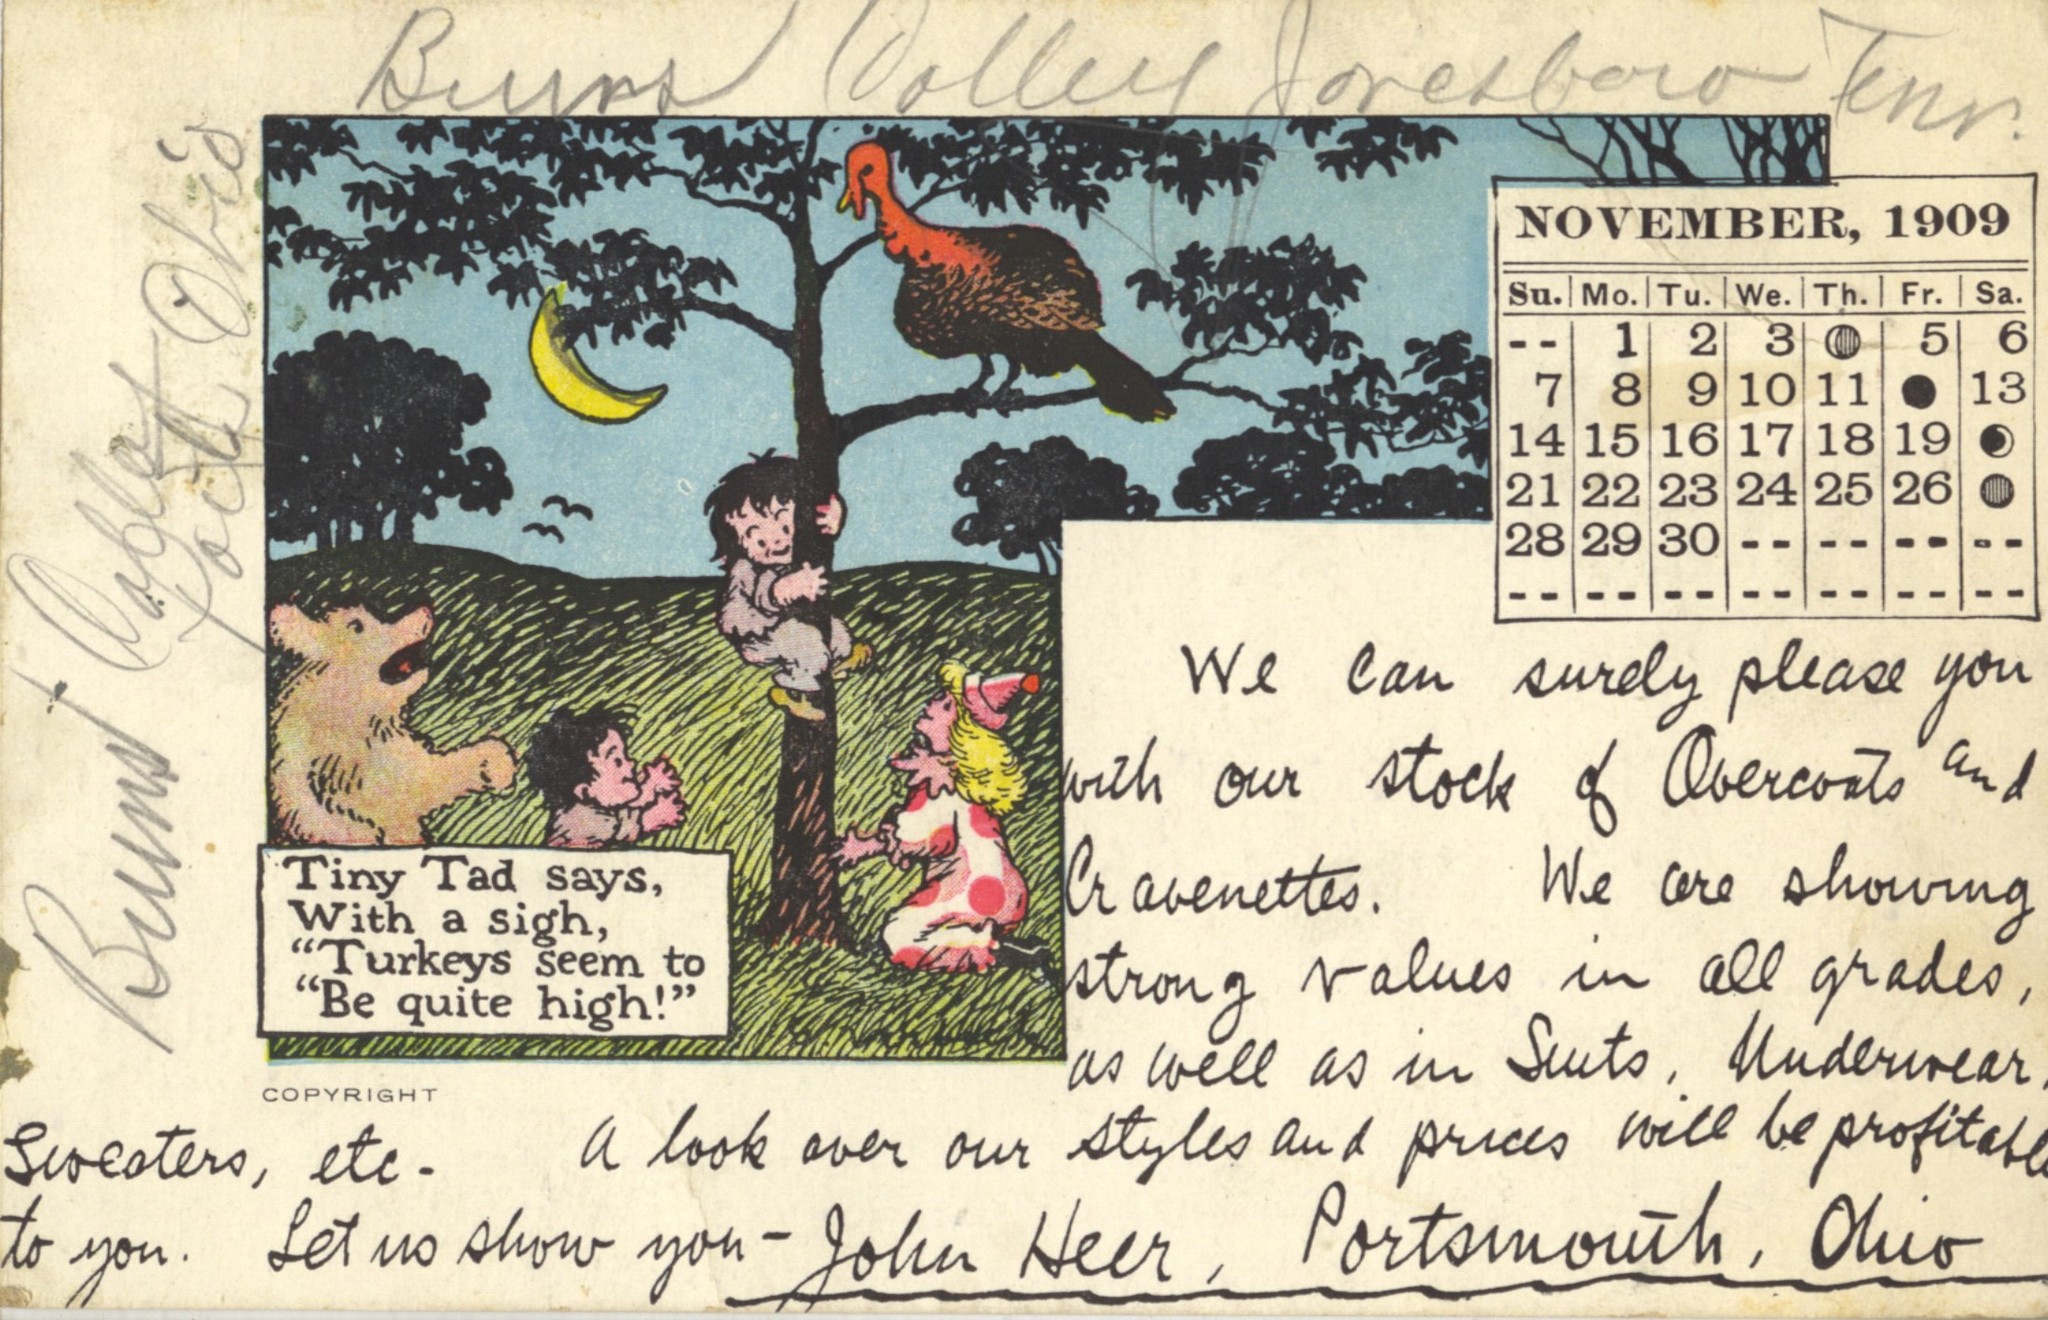 Burns Valley Jonesboro Tenn.
NOVEMBER, 1909
Su. Mo. Tu. We. Th. Fr. Sa.
-- 1 2 3 5 6
7 8 9 10 11 13
14 15 16 17 18 19
21 22 23 24 25 26
28 29 30 -- -- -- --
-- -- -- -- -- -- --
Tiny Tad says,
With a sigh,
"Turkeys seem to
"Be quite high!"
COPYRIGHT
We can surely please you
with our stock of Overcoats and
Cravenettes. We are showing
strong values in all grades,
as well as in Suits, Underwear,
Sweaters, etc- A look over our styles and prices will be profitable
to you. Let us show you - John Heer, Portsmouth, Ohio